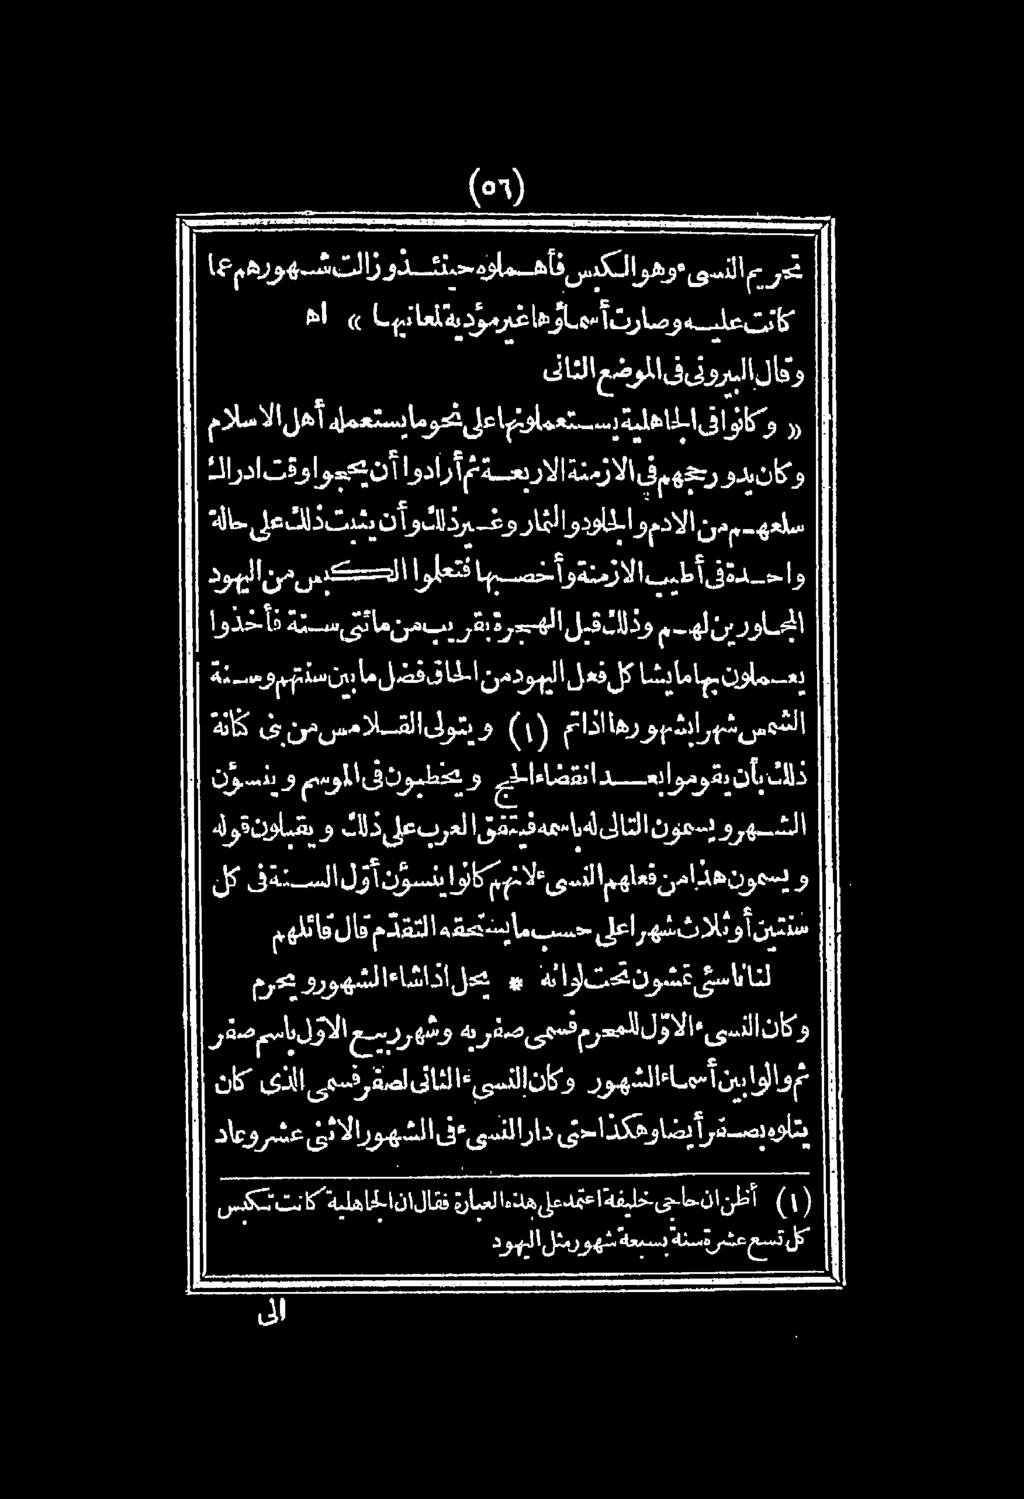 (٥٦)
تحريم النسىء وهو الكبس فأهملوه حينئذ وزالت شهورهم عما
كانت عليه وصارت أسماؤها غير مؤدية لمعانيها » اه
وقال البيرونى فى الموضع الثانى
« وكانوا فى الجاهلية يستعملونها على نحو ما يستعمله أهل الاسلام
وكان يدور حجهم فى الازمنة الاربعة ثم أرادوا أن يحجوا وقت ادراك
سلعهم من الادم والجلود والثمار وغير ذلك وأن يثبت ذلك على حالة
واحدة فى أطيب الازمنة وأخصبها فتعلموا الكبس من اليهود
المجاورين لهم وذلك قبل الهجرة بقريب من مائتى سنة فأخذوا
يعملون بها ما يشاكل فعل اليهود من الحاق فضل ما بين سنتهم وسنة
الشمس شهرا بشهورها اذا تم (١) ويتولى القلامس من بنى كنانة
ذلك بأن يقوموا بعد انقضاء الحج ويخطبون فى الموسم وينسؤن
الشهر ويسمون التالى له باسمه فيتفق العرب على ذلك ويقبلون قوله
ويسمون هذا من فعلهم النسىء لانهم كانوا ينسؤن أول السنة فى كل
سنتين أو ثلاث شهرا على حسب ما يستحقه التقدّم قال قائلهم
لنا ناسئ تمشون تحت لوائه * يحل اذا شاء الشهور ويحرم
وكان النسىء الاوّل للمحرم فسمى صفر به وشهر ربيع الاوّل باسم صفر
ثم والوا بين أسماء الشهور وكان النسىء الثانى لصفر فسمى الذى كان
يتلوه بصفر أيضا وهكذا حتى دار النسىء فى الشهور الاثنى عشر وعاد
(١) أظن ان حاجى خليفة اعتمد على هذه العبارة فقال ان الجاهلية كانت تكبس
كل تسع عشرة سنة بسبعة شهور مثل اليهود
الى